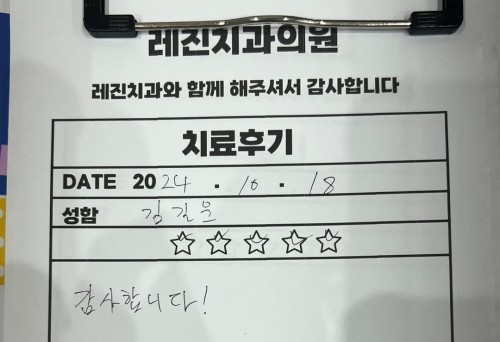 레진치과의원
레진치과와 함께 해주셔서 감사합니다
치료후기
DATE 2024 . 10 . 18
성함 김길운
☆ ☆ ☆ ☆ ☆
감사합니다!